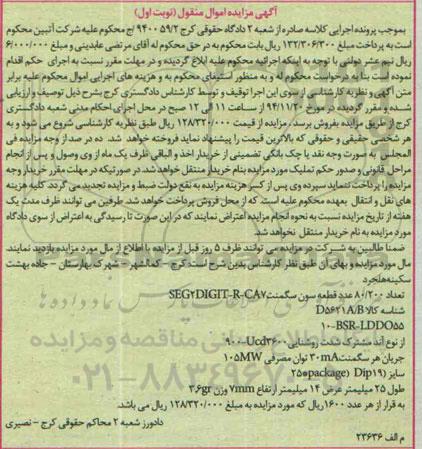 آگهی مزایده اموال منقول (نوبت اول)
بموجب پرونده اجرایی کلاسه صادره از شعبه ۲ دادگاه حقوقی کرج ۹۴۰۰۵۹/۲ اج محکوم علیه شرکت آتبین محکوم
است به پرداخت مبلغ ۱۳۲/۳۰۶/۳۰۰ ریال بابت محکوم به در حق محکوم له آقای مرتضی عابدینی و مبلغ ۶/۰۰۰/۰۰۰
ریال نیم عشر دولتی با توجه به اینکه اجرائیه محکوم علیه ابلاغ گردیده و در مهلت مقرر نسبت به اجرای حکم اقدام
نموده است بنا به درخواست محکوم له و به منظور استیفای محکوم به و هزینه های اجرایی اموال محکوم علیه برابر
متن آگهی و نظریه کارشناسی از سوی این اجرا توقیف و توسط کارشناس دادگستری کرج بشرح ذیل توصیف و ارزیابی
شده و مقرر گردیده در مورخ ۹۴/۱۱/۲۰ از ساعت ۱۱ الی ۱۲ صبح در محل اجرای احکام مدنی شعبه دادگستری
کرج از طریق مزایده بفروش برسد. مزایده از قیمت ۱۲۸/۳۲۰/۰۰۰ ریال طبق نظریه کارشناسی شروع می شود و به
هر شخصی حقیقی و حقوقی که بالاترین قیمت را پیشنهاد نماید فروخته خواهد شد. ده در صد از وجه مزایده فی
المجلس به صورت وجه نقد یا چک بانکی تضمینی از خریدار اخذ و الباقی ظرف یک ماه از وی وصول و پس از انجام
مراحل قانونی و صدور حکم تملیک مورد مزایده بنام خریدار منتقل خواهد شد. در صورتیکه در مهلت مقرر خریدار وجه
مزایده را پرداخت ننماید سپرده وی پس از کسر هزینه مزایده به نفع دولت ضبط و مزایده تجدید می گردد. کلیه هزینه
های نقل و انتقال بعهده محکوم علیه است. که از محل فروش پرداخت خواهد شد. طرفین می توانند ظرف مدت یک
هفته از تاریخ مزایده نسبت به نحوه انجام مزایده اعتراض نمایند که در این صورت تا رسیدگی به اعتراض از سوی دادگاه
مورد مزایده به نام خریدار منتقل نخواهد شد.
ضمنا طالبین به شرکت در مزایده می توانند ظرف ۵ روز قبل از مزایده با اطلاع از مال مورد مزایده بازدید نمایند.
مال مورد مزایده و بهای آن طبق نظر کارشناس بدین شرح است: کرج - کمالشهر - شهرک بهارستان - جاده بهشت
سکینه
تعداد ۸۰/۲۰۰ عدد قطعه سون سگمنت SEG۲DIGIT-R-CA۷
شناسه کالا D۵۶۲۱A/B
۱۰-BSR-LDD۰۵۵
از نوع آند مشترک شدت روشنایی ۹۰۰-Ucd۳۶۰۰
جریان هر سگمنت ۳۰mA توان مصرفی ۱۰۵MW
سایز (۱۹package) Dip*۲۵
طول ۲۵ میلیمتر عرض ۱۴ میلیمتر ارتفاع ۷mm وزن ۳,۶gr
به قرار از هر عدد ۱۶۰۰ ریال که مورد مزایده به مبلغ ۱۲۸/۳۲۰/۰۰۰ ریال می باشد.
دادورز شعبه ۲ محاکم حقوقی کرج - نصیری
م الف ۲۳۶۳۶
پایگاه اطلاع رسانی مناقصه و مزایده
۰۲۱-۸۸۳۴۹۶۷۰